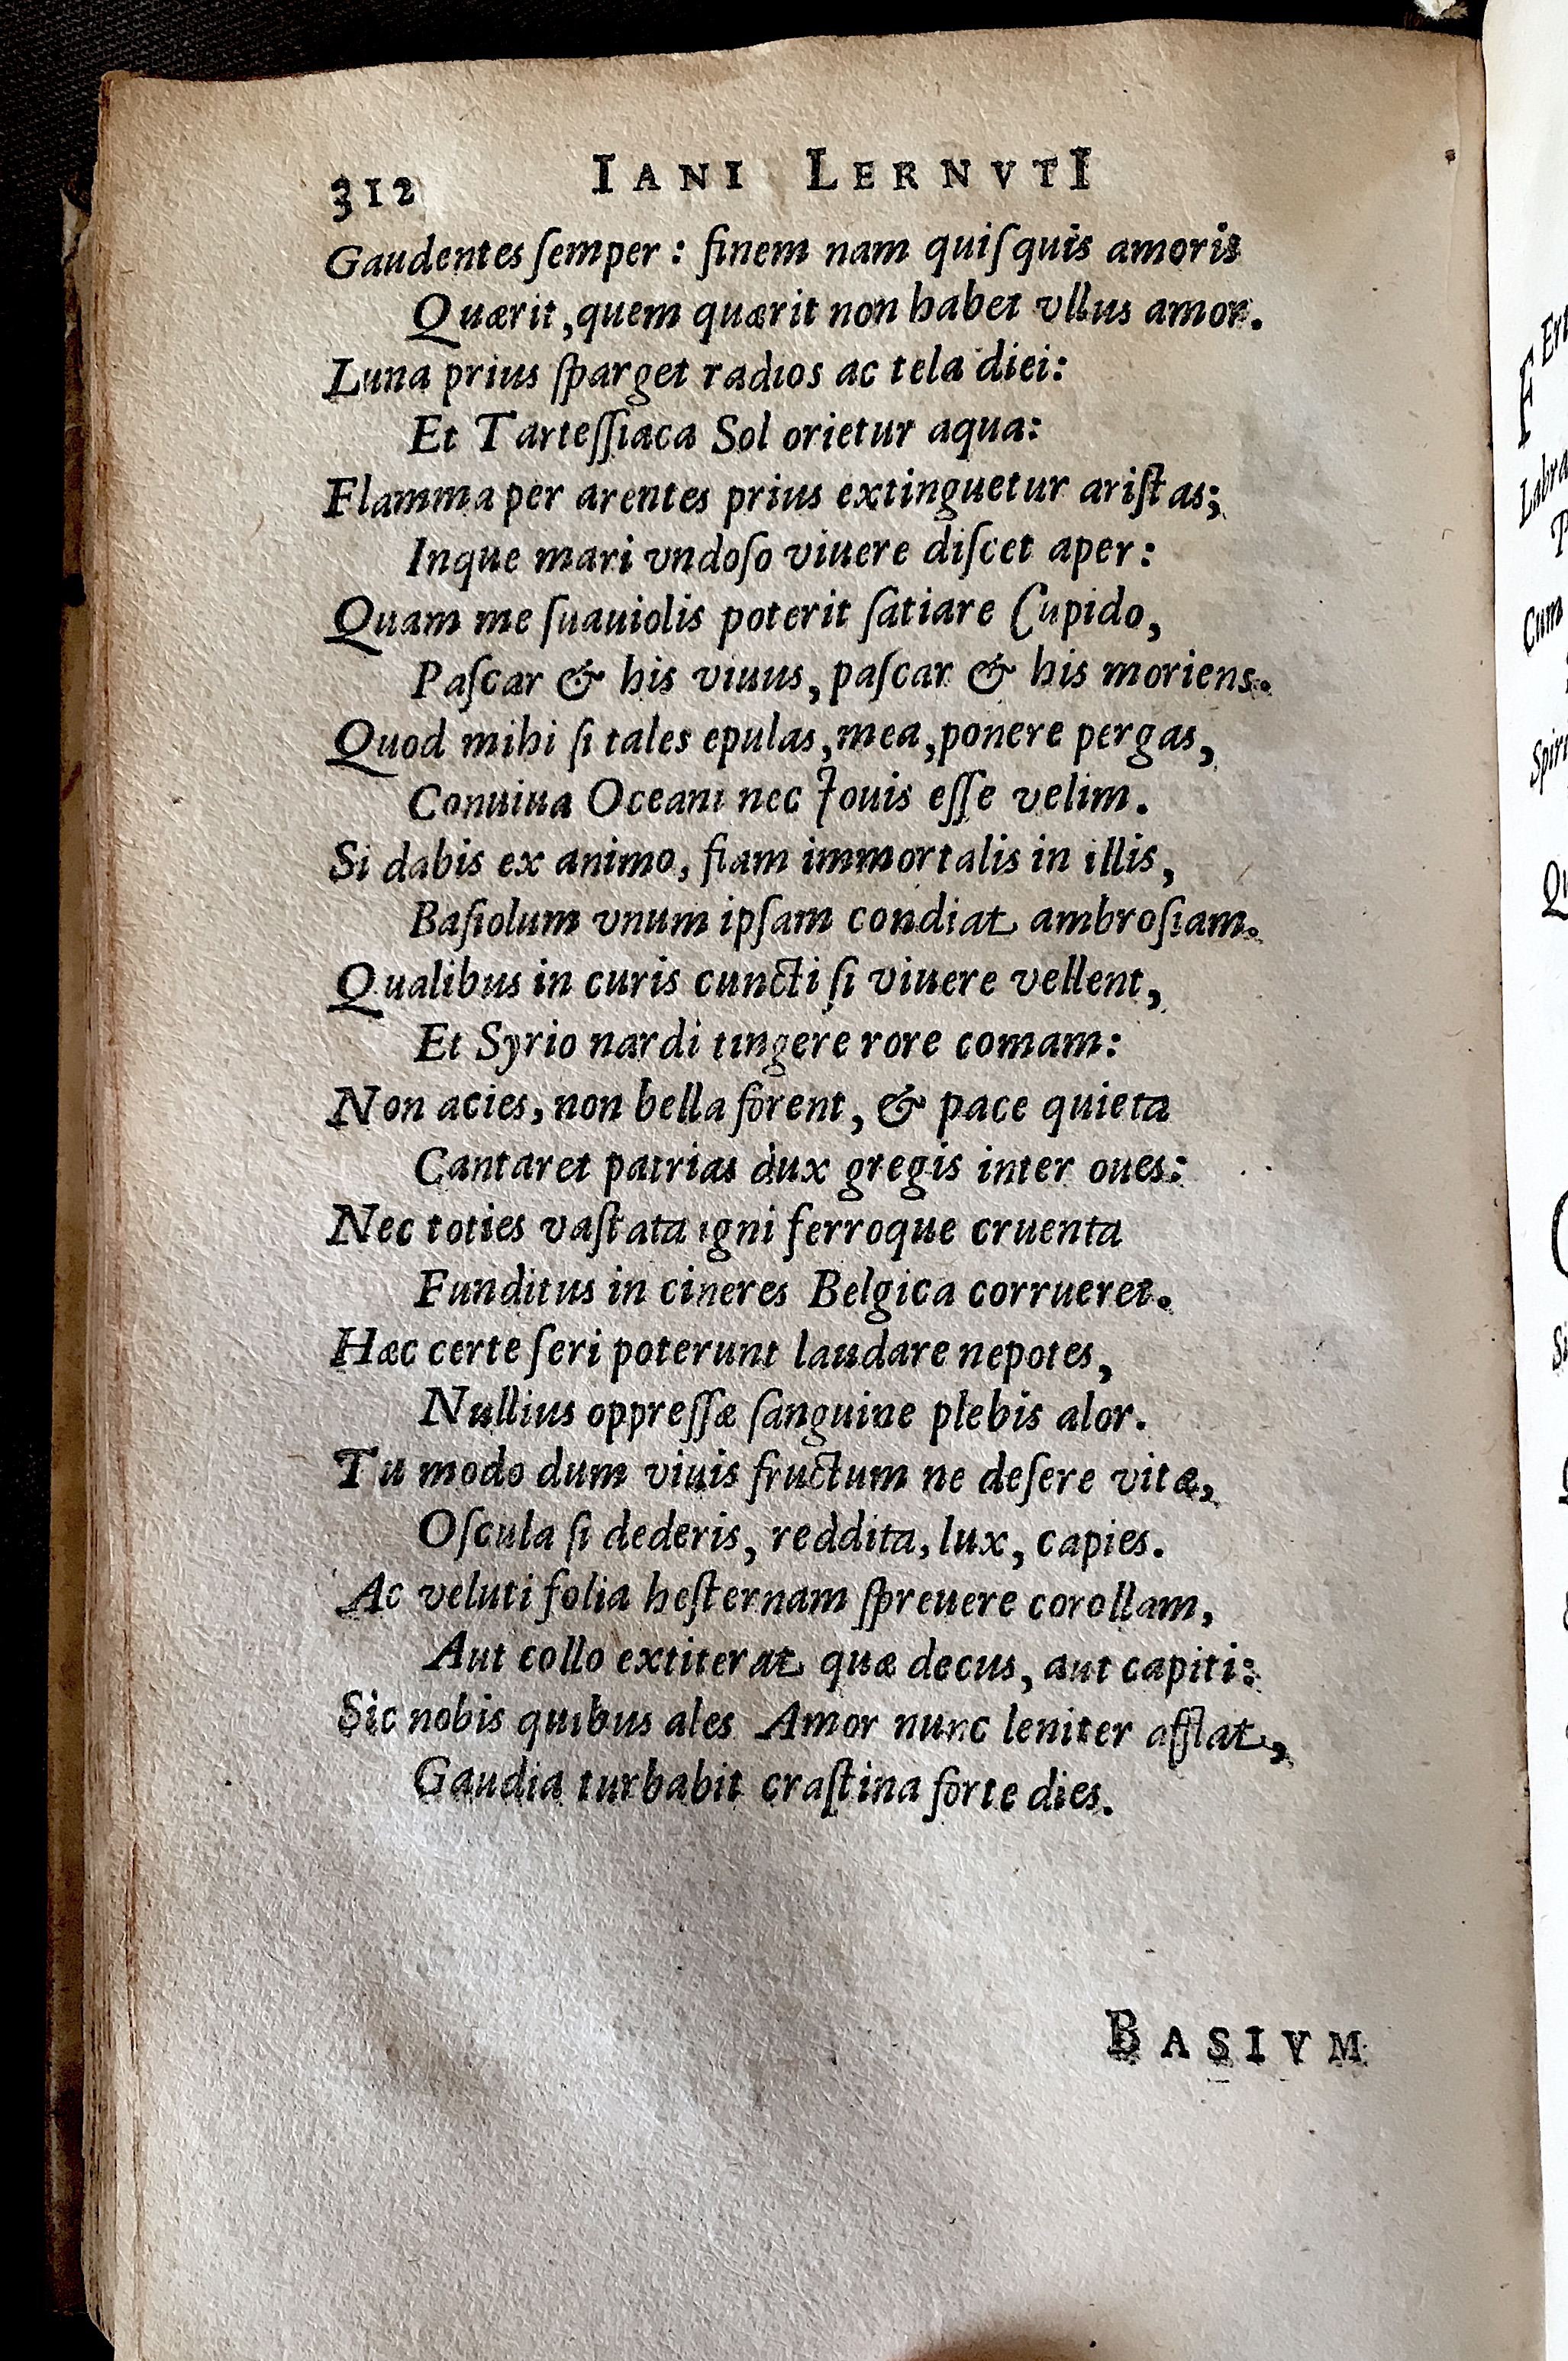 312 IANI LERNVTI
Gaudentes ſemper : finem nam quiſquis amoris
Quærit, quem quærit non habet vllus amor.
Luna prius ſparget radios ac tela diei:
Et Tarteſſiaca Sol orietur aqua:
Flamma per arentes prius extinguetur ariſtas;
Inque mari vndoſo viuere diſcet aper:
Quam me ſuauiolis poterit ſatiare Cupido,
Paſcar & his viuus, paſcar & his moriens.
Quod mihi ſi tales epulas, mea, ponere pergas,
Conuiua Oceani nec Iouis eſſe velim.
Si dabis ex animo, fiam immortalis in illis,
Baſiolum vnum ipſam condiat ambroſiam.
Qualibus in curis cuncti ſi viuere vellent,
Et Syrio nardi tingere rore comam:
Non acies, non bella forent, & pace quieta
Cantaret patrias dux gregis inter oues:
Nec toties vaſtata igni ferroque cruenta
Funditus in cineres Belgica corrueret.
Hæc certe ſeri poterunt laudare nepotes,
Nullius oppreſſæ ſanguine plebis alor.
Tu modo dum viuis fructum ne deſere vitæ,
Oſcula ſi dederis, reddita, lux, capies.
Ac veluti folia heſternam ſpreuere corollam,
Aut collo extiterat quæ decus, aut capiti:
Sic nobis quibus ales Amor nunc leniter afflat,
Gaudia turbabit craſtina forte dies.
BASIVM
Labra
Cum